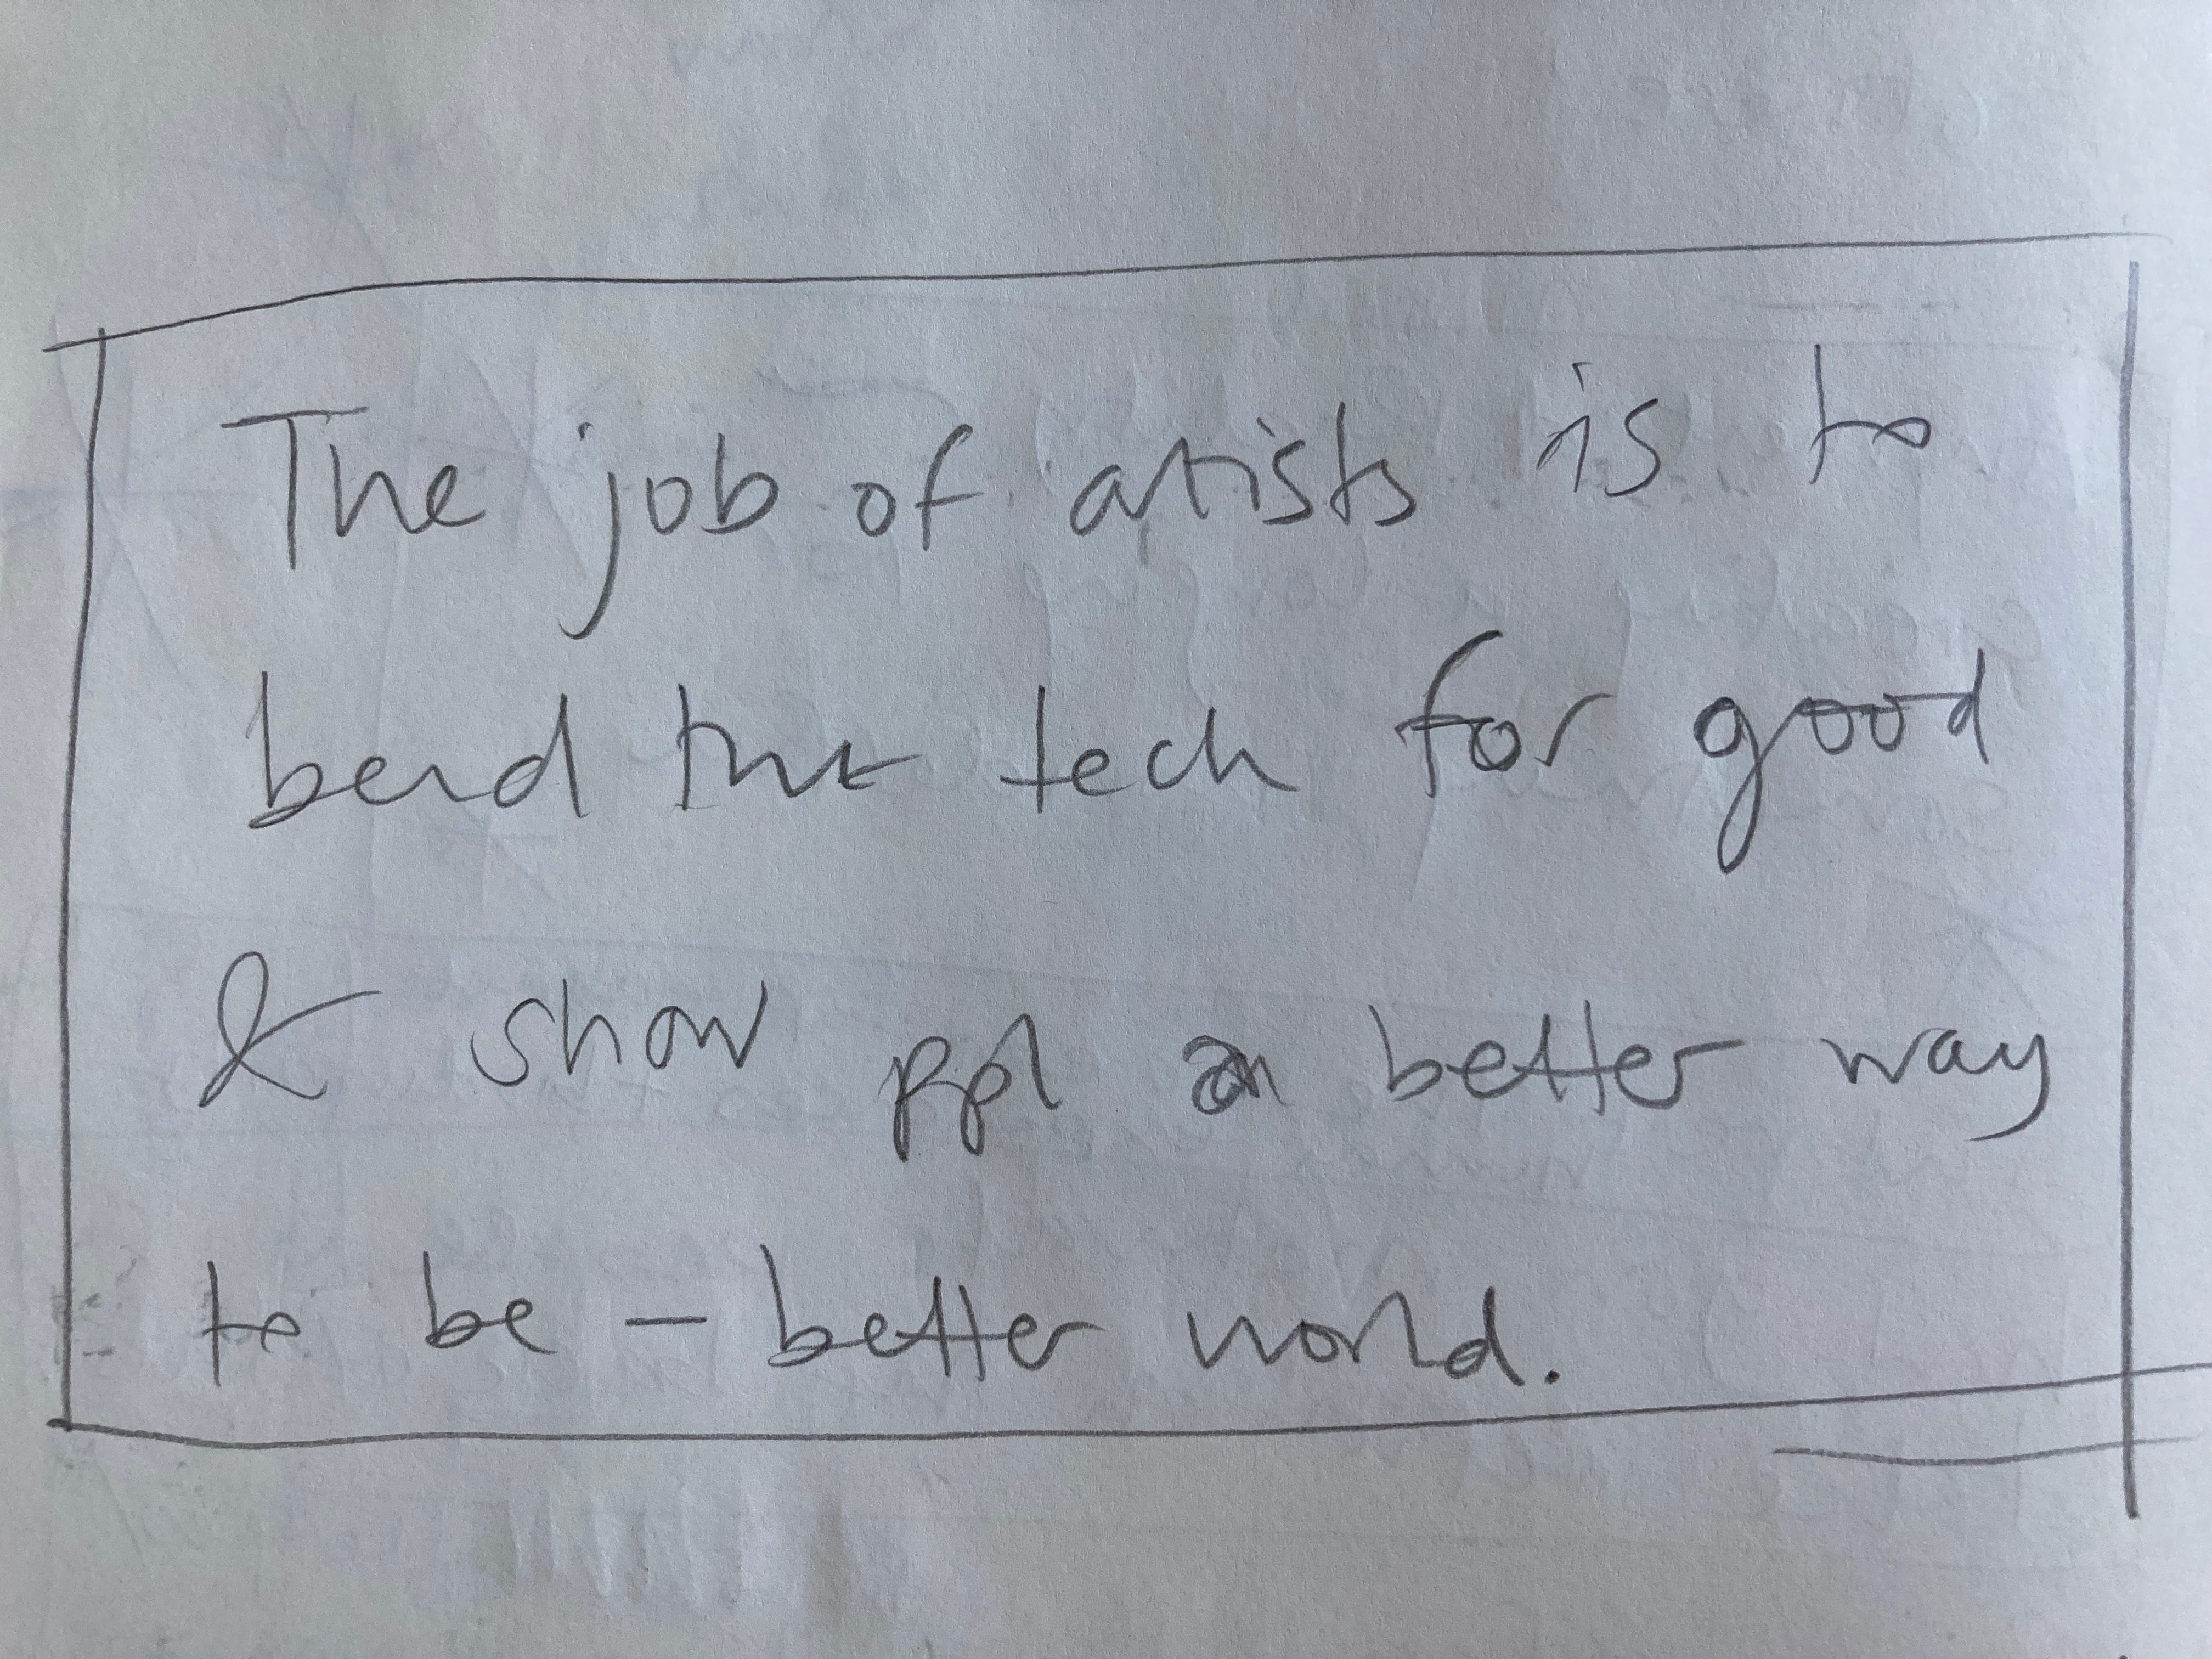 The job of artists is to
bend the tech for good
& show ppl a better way
to be – better world.